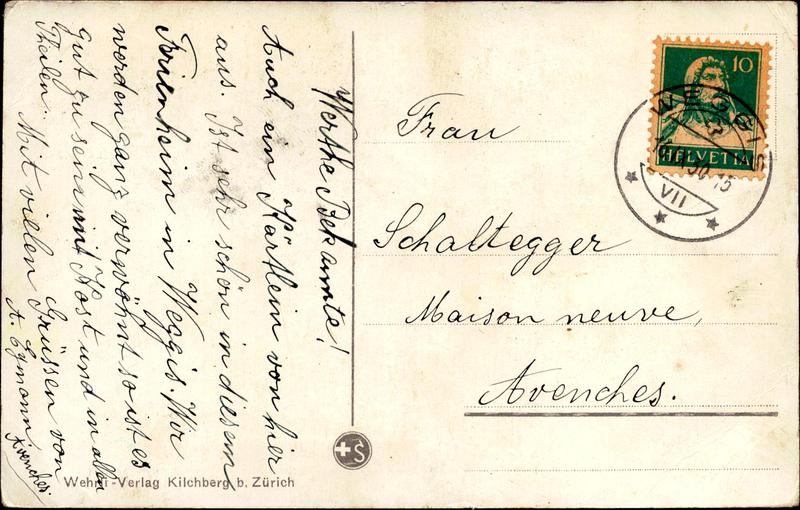 Werthe Bekannte!
Auch ein Kärtlein von hier
aus. Ist sehr schön in diesem
Ferienheim in Weggis. Wir
werden ganz verwöhnt so ist es
gut zu sein mit Kost und in allen
Theilen. Mit vielen Grüssen von
A. Egmann.
Avenches
Frau
Schaltegger
Maison neuve,
Avenches.
10
HELVETIA
WEGGIS
30-15
VII
S
Wehrli-Verlag Kilchberg b. Zürich